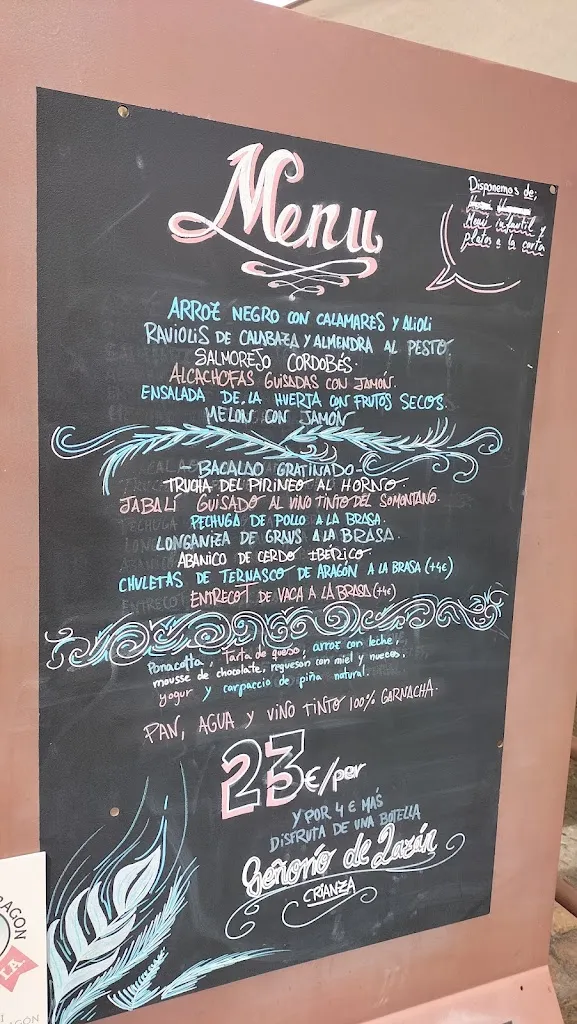 Menu
Disponemos de;
Menú infantil y
platos a la carta
ARROZ NEGRO CON CALAMARES Y ALIOLI
RAVIOLIS DE CALABAZA Y ALMENDRA AL PESTO.
SALMOREJO CORDOBÉS.
ALCACHOFAS GUISADAS CON JAMÓN.
ENSALADA DE LA HUERTA CON FRUTOS SECOS.
MELON CON JAMÓN
- BACALAO GRATINADO -
TRUCHA DEL PIRINEO AL HORNO.
JABALÍ GUISADO AL VINO TINTO DEL SOMONTANO.
PECHUGA DE POLLO A LA BRASA.
LONGANIZA DE GRAUS A LA BRASA.
ABANICO DE CERDO IBÉRICO.
CHULETAS DE TERNASCO DE ARAGÓN A LA BRASA (+4€)
ENTRECOT DE VACA A LA BRASA (+4€)
Panacotta, Tarta de queso, arroz con leche,
mousse de chocolate, requeson con miel y nueces,
yogur y carpaccio de piña natural.
PAN, AGUA Y VINO TINTO 100% GARNACHA.
23€/per
Y POR 4 € MÁS
DISFRUTA DE UNA BOTELLA
Señorío de Lazán
CRIANZA